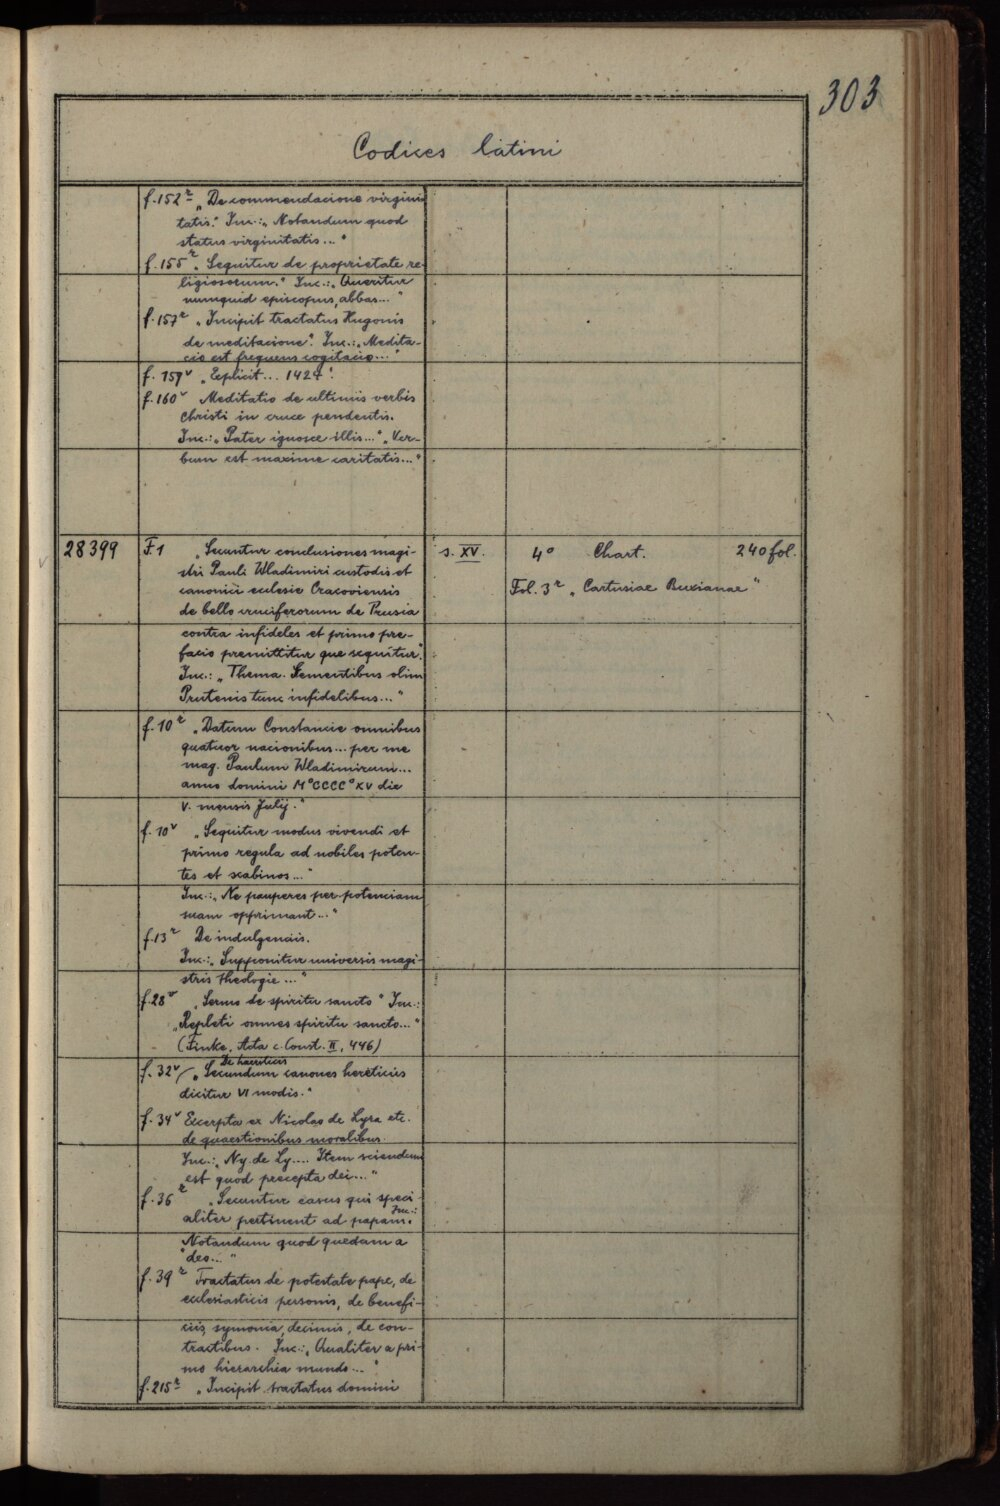 303
Codices latini
f. 152r „De commendacione virgini
tatis." Inc.: „Notandum quod
status virginitatis..."
f. 155r „Sequitur de proprietate re-
ligiosorum." Inc.: „Queritur
numquid episcopus, abbas..."
f. 157r „Incipit tractatus Hugonis
de meditacione". Inc.: „Medita-
cio est frequens cogitacio..."
f. 159v „Explicit... 1424".
f. 160v Meditatio de ultimis verbis
Christi in cruce pendentis.
Inc.: „Pater ignosce illis..." „Ver-
bum est maxime caritatis..."
28399 F. 1 „Secuntur conclusiones magi- s. XV. 4o Chart. 240 fol.
stri Pauli Wladimiri custodis et
canonici ecclesie Cracoviensis Fol. 3r „Cartusiae Buxianae"
de bello cruciferorum de Prusia
contra infideles et primo pre-
facio premittitur que sequitur".
Inc.: „Thema. Sementibus olim
Prutenis tunc infidelibus..."
f. 10r „Datum Constancie omnibus
quatuor nacionibus... per me
mag. Paulum Wladimirum...
anno domini MoCCCCoXV die
V. mensis Julij."
f. 10v „Sequitur modus vivendi et
primo regula ad nobiles poten-
tes et scabinos..."
Inc.: „Ne pauperes per potenciam
suam opprimant..."
f. 13r De indulgenciis.
Inc.: „Supponitur universis magi-
stris theologie..."
f. 28v „Sermo de spiritu sancto" Inc.:
„Repleti omnes spiritu sancto..."
(Finke, Acta c. Const. II, 446)
De haereticis
f. 32v „Secundum canones hereticus
dicitur VI modis."
f. 34v Excerpta ex Nicolao de Lyra etc.
de quaestionibus moralibus.
Inc.: „Ny. de Ly.... Item sciendum
est quod precepta dei..."
f. 36r „Secuntur casus qui speci-
aliter pertinent ad papam. Inc.:
Notandum quod quedam a
deo..."
f. 39r Tractatus de potestate pape, de
ecclesiasticis personis, de benefi-
ciis, symonia, decimis, de con-
tractibus. Inc.: „Qualiter a pri-
mo hierarchia mundo..."
f. 215r „Incipit tractatus domini